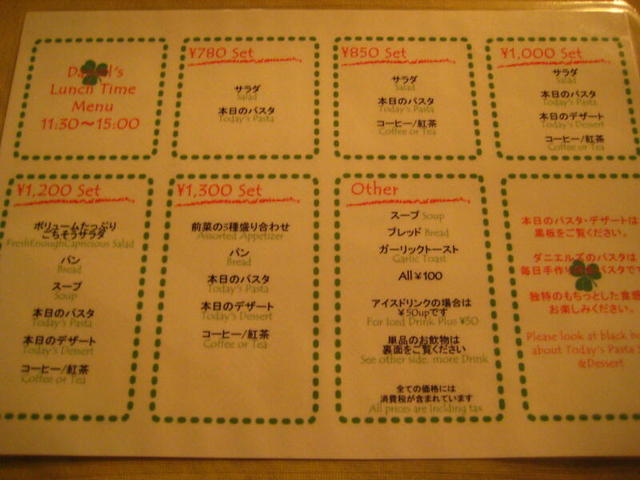 Lunch Time
Menu
11:30～15:00
¥780 Set
サラダ
Salad
本日のパスタ
Today's Pasta
¥850 Set
サラダ
Salad
本日のパスタ
Today's Pasta
コーヒー/紅茶
Coffee or Tea
¥1,000 Set
サラダ
Salad
本日のパスタ
Today's Pasta
本日のデザート
Today's Dessert
コーヒー/紅茶
Coffee or Tea
¥1,200 Set
ボリュームたっぷり
ごちそうサラダ
FreshEnoughCapricious Salad
パン
Bread
スープ
Soup
本日のパスタ
Today's Pasta
本日のデザート
Today's Dessert
コーヒー/紅茶
Coffee or Tea
¥1,300 Set
前菜の3種盛り合わせ
Assorted Appetizer
パン
Bread
本日のパスタ
Today's Pasta
本日のデザート
Today's Dessert
コーヒー/紅茶
Coffee or Tea
Other
スープ Soup
ブレッド Bread
ガーリックトースト
Garlic Toast
All ¥100
アイスドリンクの場合は
¥50upです
For Iced Drink Plus ¥50
単品のお飲物は
裏面をご覧ください
See other side. more Drink
全ての価格には
消費税が含まれています
All prices are Inclding tax
本日のパスタ・デザートは
黒板をご覧ください。
ダニエルズのパスタは
毎日手作り パスタで
独特のもちっとした食感
お楽しみください。
Please look at black
about Today's Pasta
&Dessert